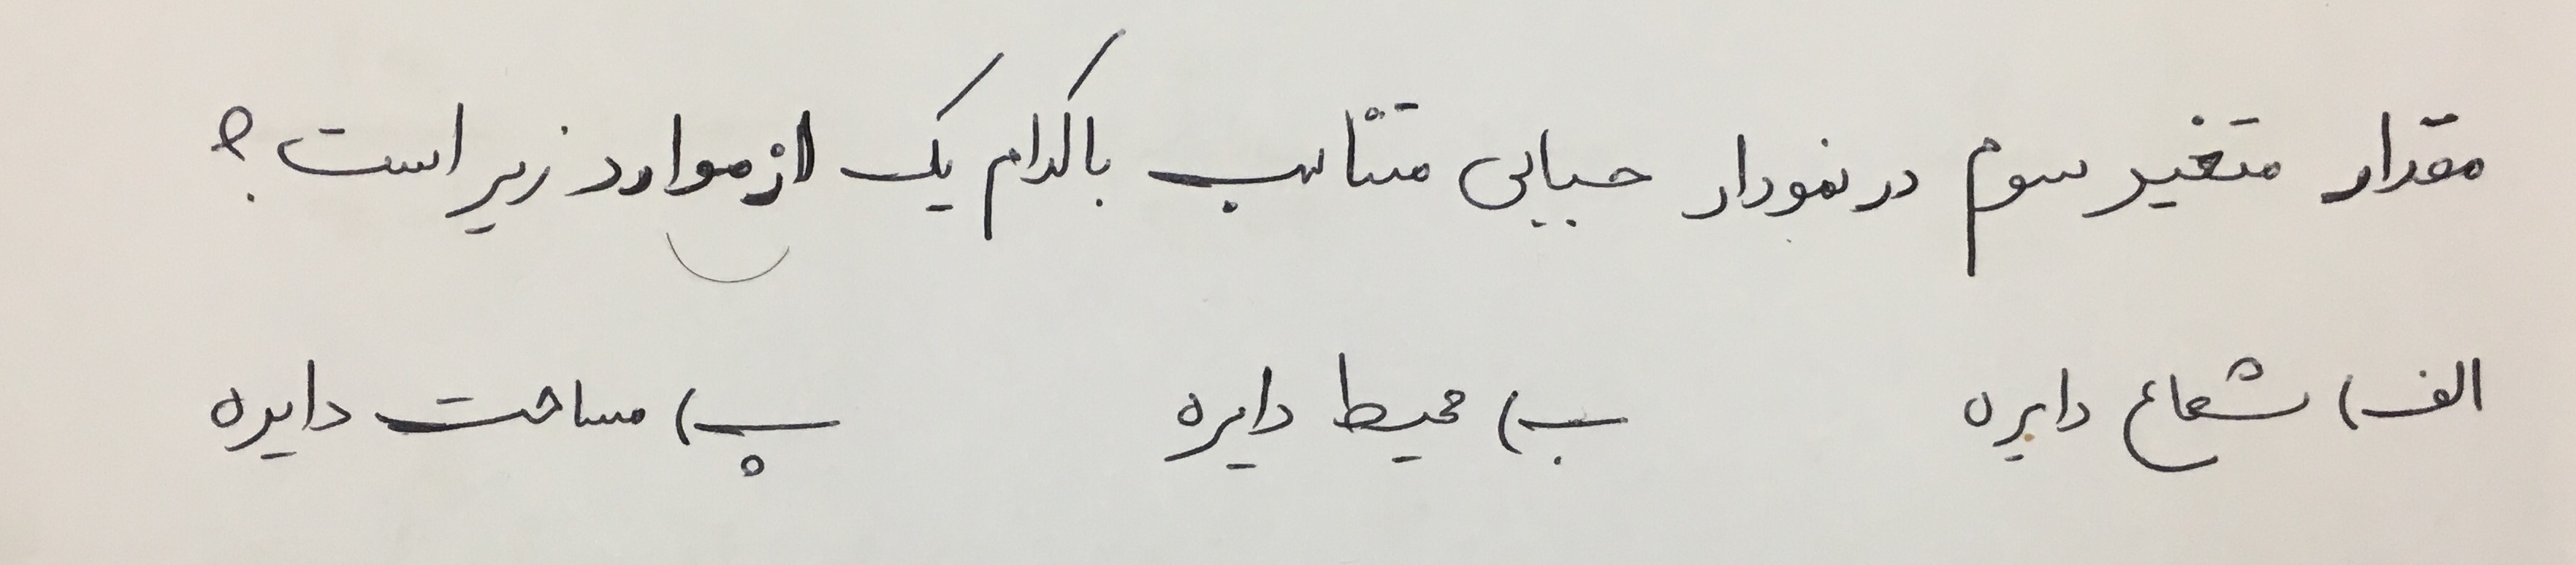 مقدار متغیر سوم در نمودار حبابی متناسب با کدام یک از موارد زیر است؟
الف) شعاع دایره ب) محیط دایره پ) مساحت دایره